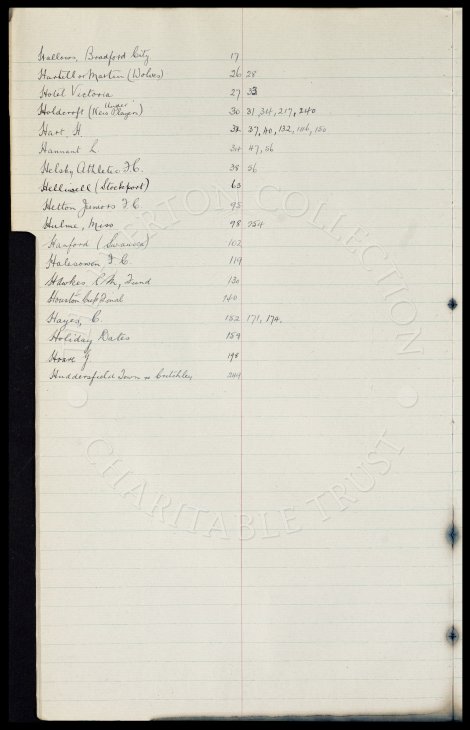 Hallows, Bradford City 17
Hartill or Martin (Wolves) 26 28
Hotel Victoria 27 33
Holdcroft (Under Neis Player) 30 31, 34, 217, 240
Hart, H. 32 37, 40, 132, 146, 150
Hannant L. 34 47, 56
Helsby Athletic F.C. 38 56
Helliwell (Stockport) 63
Hetton Juniors F.C. 95
Hulme, Miss 98 754
Hanford (Swansea) 102
Halesowen F.C. 119
Hawkes, C.M, Fund 130
Houston Cup Final 140
Hayes, C. 152 171, 174.
Holiday Dates 159
Hoare J 195
Huddersfield Town re Critchley 244
EVERTON COLLECTION
CHARITABLE TRUST